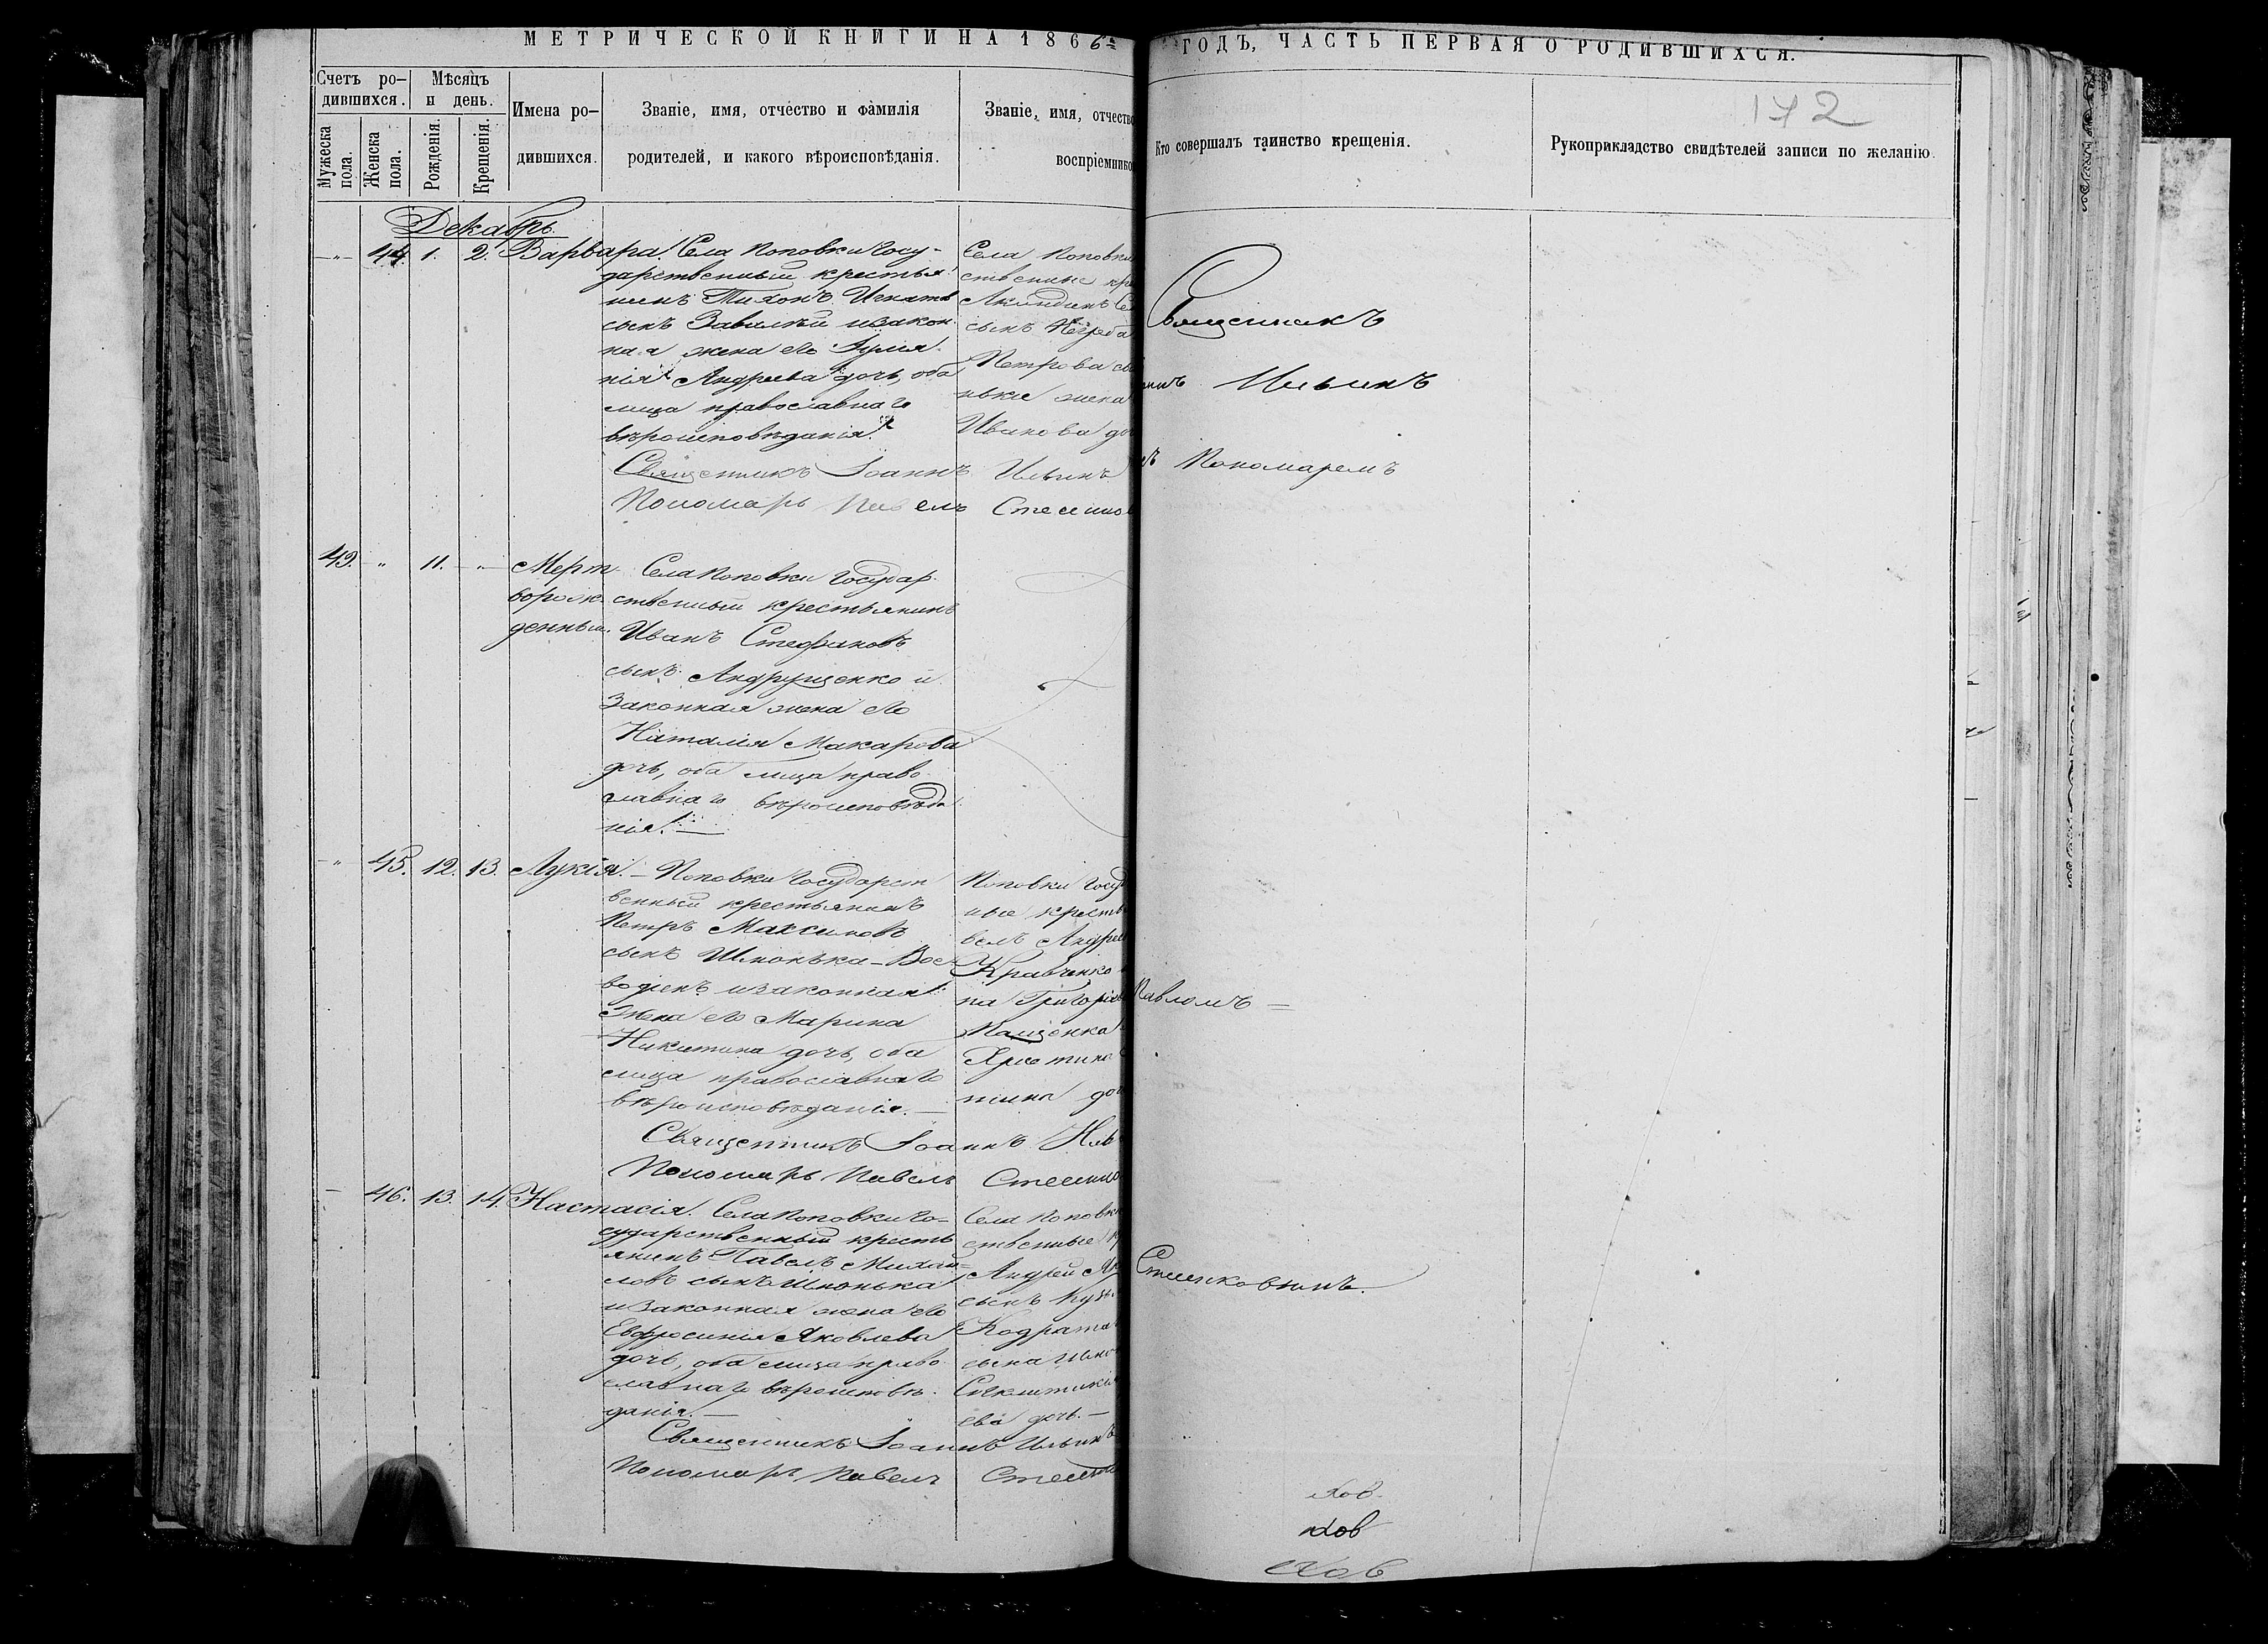 МЕТРИЧЕСКОЙ КНИГИ НА 1866й
ГОДЪ, ЧАСТЬ ПЕРВАЯ О РОДИВШИХСЯ.
172
Счетъ ро-
дившихся.
Мужеска
пола.
Женска
пола.
Мѣсяцъ
и день.
Рожденія.
Крещенія.
Имена ро-
дившихся.
Званіе, имя, отчество и фамилія
родителей, и какого вѣроисповѣданія.
Званіе, имя, отчество
воспріемнико
Кто совершалъ таинство крещенія.
Рукоприкладство свидѣтелей записи по желанію.
Декабрь.
44. 1. 2. Варвара.
Села Поповки Госу-
дарственный крестья
нинъ Тихонъ Игнатів
сынъ и закон-
ная жена его Іулія
нія Андреева дочь, оба
лица православнаго
вѣроисповѣданія.
Священникъ Іоаннъ Ильинъ
Пономарь Павелъ
Села Поповки
ственные кре
Акиндинъ
сынъ
Петрова
жена
Иванова до
49. " 11. "
Мерт
ворож
денный.
Села Поповки Государ-
ственный крестьянинъ
Иванъ Стефановъ
сынъ Андрущенко и
законная жена его
Наталія Макарова
дочь, оба лица право
славнаго вѣроисповѣда
нія.
" 45. 12. 13. Лукія.
Поповки Государст
венный крестьянинъ
Петръ Максимовъ
сынъ Шпонька-Вое
водіенъ и законная
жена его Марина
Никитина дочь, оба
лица православнаго
вѣроисповѣданія.
Священникъ Іоаннъ Иль
Пономарь Павелъ
Поповки Госуд
ные крестья
велъ Андрее
Кравченко
на Григорія
Пащенка
Христина
тина доч
46. 13. 14. Настасія.
Села Поповки Го-
сударственный кресть
янинъ Павелъ Михай-
ловъ сынъ Шпонька
и законная жена его
Евфросинія Яковлева
дочь, оба лица право
славнаго вѣроисповѣ-
данія.
Священникъ Іоаннъ Ильинъ
Пономарь Павелъ
Села Поповки
ственные кр
Андрей
сынъ
Кодрата
сына
Сиклитикія
ева дочь.
Священникъ
Ильинъ
Пономаремъ
Павломъ